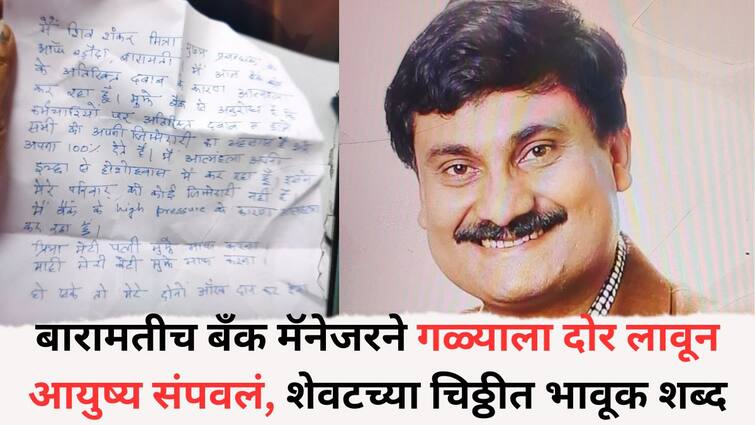 मैं शिव शंकर मित्रा मुख्य प्रबन्धक
आफ बड़ौदा, बारामती में आज बैंक
के अतिरिक्त दबाव के कारण आत्महत्या
कर रहा हूँ। मुझे बैंक से अनुरोध है कि
कर्मचारियों पर अतिरिक्त दबाव न
सभी को अपनी जिम्मेदारी का एहसास है
अपना 100% देते हैं। मैं आत्महत्या अपनी
इच्छा से होशोहवास में कर रहा हूँ। इसमें
मेरे परिवार की कोई जिम्मेदारी नहीं है
में बैंक के high pressure के कारण
कर रहा हूँ।
प्रिया मेरी पत्नी मुझे माफ करना
माही मेरी बेटी मुझे माफ करना।
हो सके तो मेरे दोनों आँख दान कर देना
बारामतीच बँक मॅनेजरने गळ्याला दोर लावून
आयुष्य संपवलं, शेवटच्या चिठ्ठीत भावूक शब्द